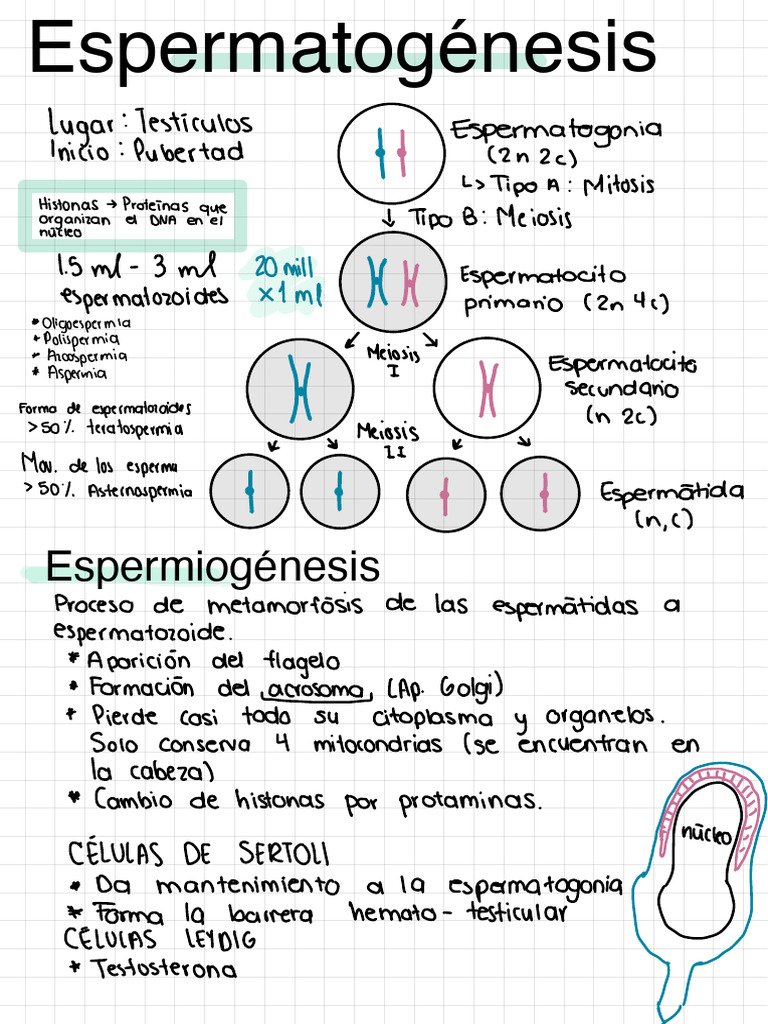 Espermatogénesis
Lugar: Testículos
Inicio: Pubertad
Histonas → Proteínas que
organizan el DNA en el
núcleo
1.5 ml - 3 ml
espermatozoides
20 mill
x 1 ml
* Oligoespermia
* Polispermia
* Azoospermia
* Aspermia
Forma de espermatozoides
>50%. teratospermia
Mov. de los esperma
>50%. Astenospermia
Espermatogonia
(2n 2c)
↳ Tipo A: Mitosis
↓ Tipo B: Meiosis
Espermatocito
primario (2n 4c)
Meiosis
I
Espermatocito
secundario
(n 2c)
Meiosis
II
Espermátida
(n,c)
Espermiogénesis
Proceso de metamorfósis de las espermátidas a
espermatozoide.
* Aparición del flagelo
* Formación del acrosoma (Ap. Golgi)
* Pierde casi todo su citoplasma y organelos.
Solo conserva 4 mitocondrias (se encuentran en
la cabeza)
* Cambio de histonas por protaminas.
núcleo
CÉLULAS DE SERTOLI
* Da mantenimiento a la espermatogonia
* Forma la barrera hemato-testicular
CÉLULAS LEYDIG
* Testosterona